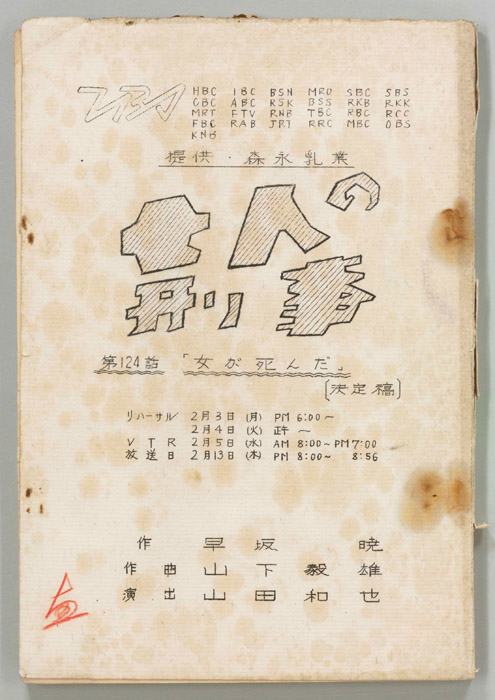 TBS
HBC IBC BSN MRO SBC SBS
CBC ABC RSK BSS RKB RKK
MRT FTV RNB TBC RBC RCC
FBC RAB JRT RRC MBC OBS
KNB
提供・森永乳業
七人の
刑事
第124話 「女が死んだ」
〔決定稿〕
リハーサル 2月3日 (月) PM 6:00~
2月4日 (火) 正午 ~
VTR 2月5日 (水) AM 8:00~PM 7:00
放送日 2月13日 (木) PM 8:00~ 8:56
作 早坂 暁
作曲 山下毅雄
演出 山田和也